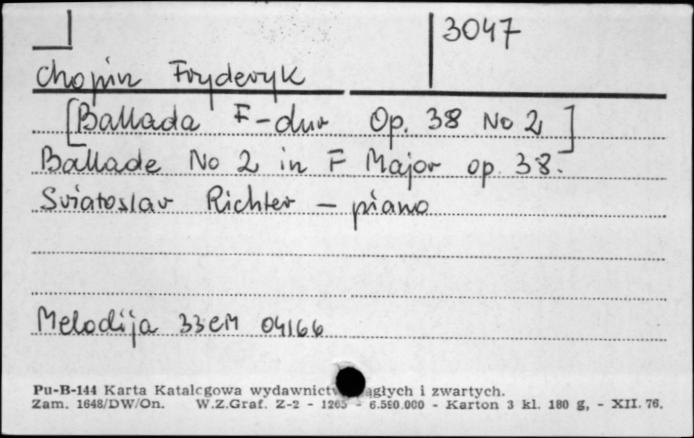 3047
Chopin Fryderyk
[Ballada F-dur Op. 38 No 2]
Ballade No 2 in F Major op. 38.
Sviatoslav Richter – piano
Melodija 33CM 04166
Pu-B-144 Karta Katalogowa wydawnictw ciągłych i zwartych.
Zam. 1648/DW/On. W.Z.Graf. Z-2 - 1265 - 6.590.000 - Karton 3 kl. 180 g, - XII. 76.